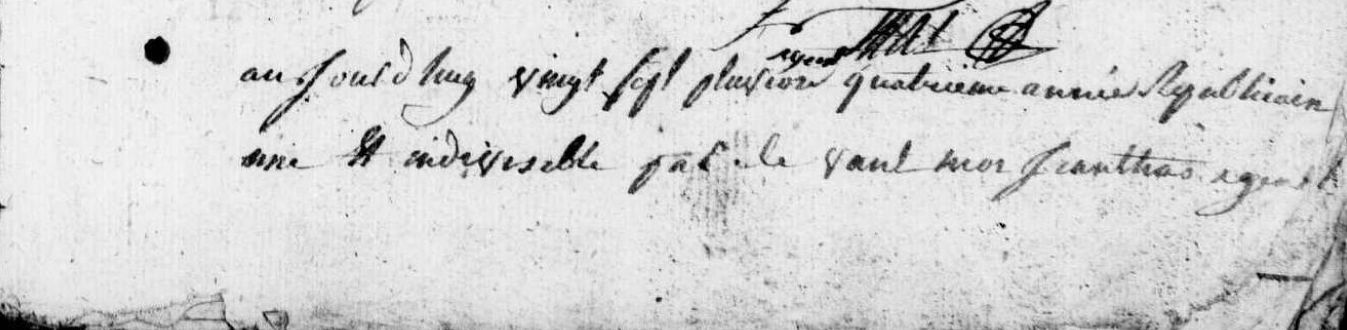 agent
aujourdhuy vingt sept pluviose quatrieme année Republicain
une Et indivisible par de vant moy agent